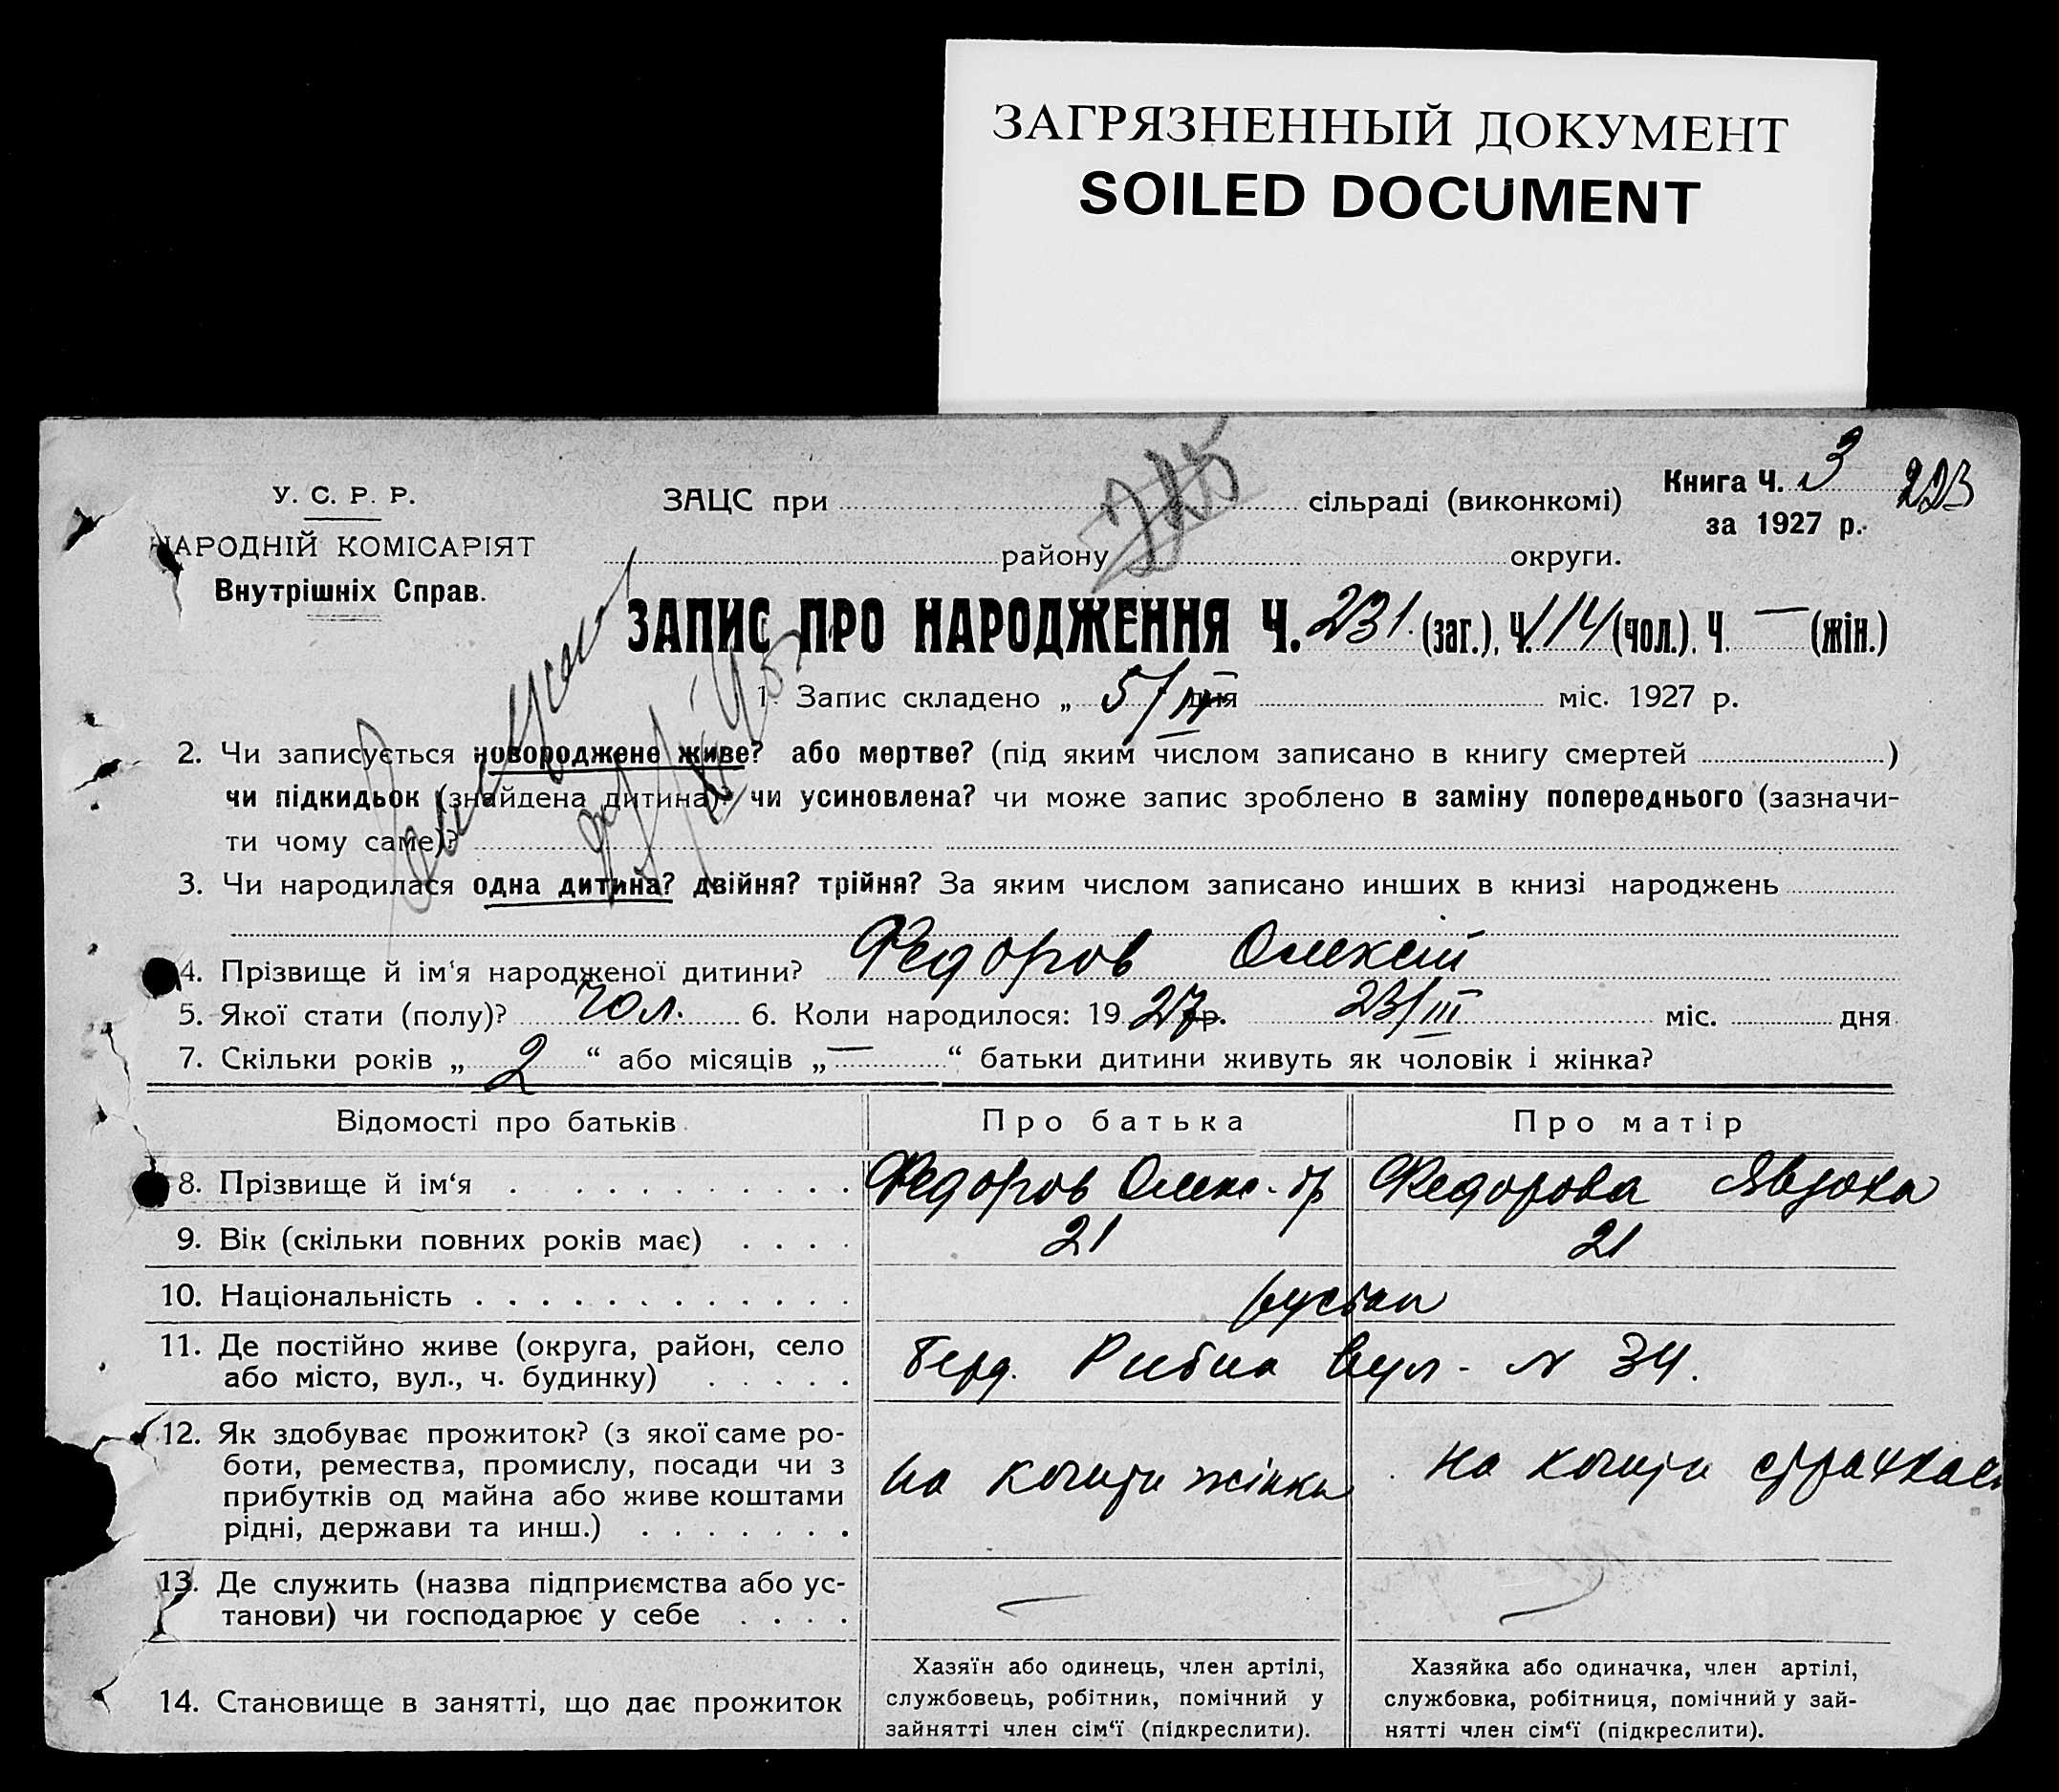 ЗАГРЯЗНЕННЫЙ ДОКУМЕНТ
SOILED DOCUMENT
225
Книга Ч. 3 223
за 1927 р.
У. С. Р. Р.
НАРОДНІЙ КОМІСАРІЯТ
Внутрішніх Справ.
ЗАЦС при сільраді (виконкомі)
району округи.
ЗАПИС ПРО НАРОДЖЕННЯ Ч. 231 (заг.), Ч. 114 (чол.), Ч. — (жін.)
1. Запис складено „ 5/IV дня міс. 1927 р.
2. Чи записується новороджене живе? або мертве? (під яким числом записано в книгу смертей )
чи підкидьок (знайдена дитина)? чи усиновлена? чи може запис зроблено в заміну попереднього (зазначи-
ти чому саме)?
3. Чи народилася одна дитина? двійня? трійня? За яким числом записано инших в книзі народжень
4. Прізвище й ім'я народженої дитини? Федоров Олексій
5. Якої стати (полу)? чол. 6. Коли народилося: 1927 р. 23/III міс. дня
7. Скільки років „ 2 “ або місяців „ — “ батьки дитини живуть як чоловік і жінка?
Відомості про батьків Про батька Про матір
8. Прізвище й ім'я Федоров Олекс-др Федорова Явдоха
9. Вік (скільки повних років має) 21 21
10. Національність
11. Де постійно живе (округа, район, село Берд. Рибна вул. N 34.
або місто, вул., ч. будинку)
12. Як здобуває прожиток? (з якої саме ро-
боти, ремества, промислу, посади чи з
прибутків од майна або живе коштами
рідні, держави та инш.) на кошти жінки на кошти
13. Де служить (назва підприємства або ус-
танови) чи господарює у себе — —
14. Становище в занятті, що дає прожиток
Хазяїн або одинець, член артілі,
службовець, робітник, помічний у
зайнятті член сім'ї (підкреслити).
Хазяйка або одиначка, член артілі,
службовка, робітниця, помічний у зай-
нятті член сім'ї (підкреслити).